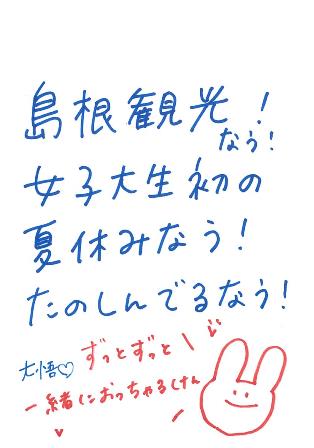 島根観光!
なう!
女子大生初の
夏休みなう!
たのしんでるなう!
大悟♡ ずっとずっと
一緒におっちゃるけん